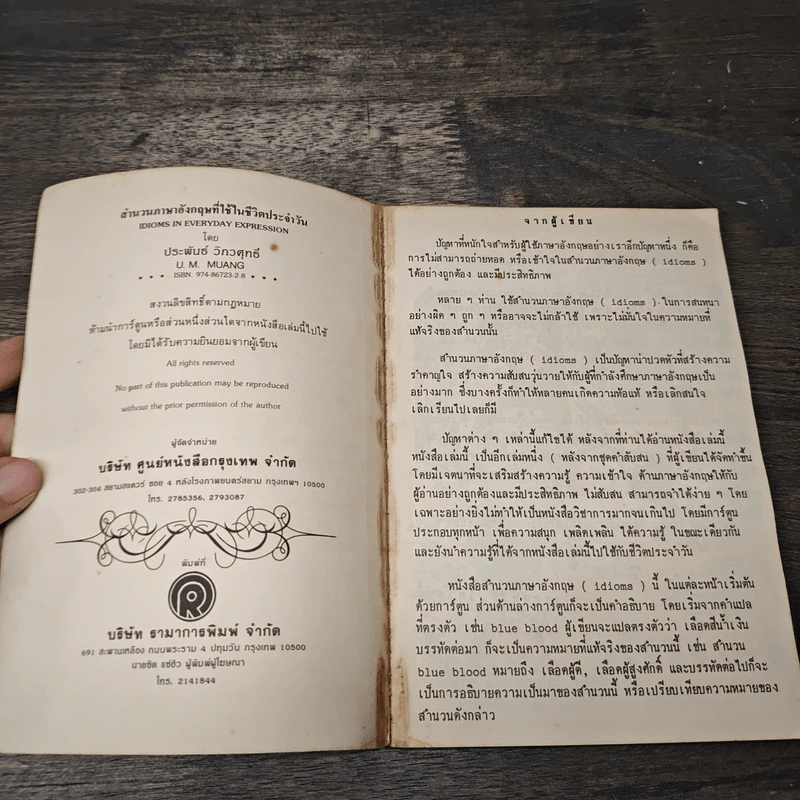 สำนวนภาษาอังกฤษที่ใช้ในชีวิตประจำวัน
IDIOMS IN EVERYDAY EXPRESSION
โดย
ประพันธ์ วิกวศุทธิ์
U. M. MUANG
• • • ISBN. 974-86723-2-8 • • •
สงวนลิขสิทธิ์ตามกฎหมาย
ห้ามนำการ์ตูนหรือส่วนหนึ่งส่วนใดจากหนังสือเล่มนี้ไปใช้
โดยมิได้รับความยินยอมจากผู้เขียน
All rights reserved
No part of this publication may be reproduced
without the prior permission of the author
ผู้จัดจำหน่าย
บริษัท ศูนย์หนังสือกรุงเทพ จำกัด
302-304 สยามสแควร์ ซอย 4 หลังโรงภาพยนตร์สยาม กรุงเทพฯ 10500
โทร. 2785356, 2793087
พิมพ์ที่
R
บริษัท รามาการพิมพ์ จำกัด
691 สะพานเหลือง ถนนพระราม 4 ปทุมวัน กรุงเทพ 10500
นายชิต แซ่ซิว ผู้พิมพ์ผู้โฆษณา
โทร. 2141844
จากผู้เขียน
ปัญหาที่หนักใจสำหรับผู้ใช้ภาษาอังกฤษอย่างเราอีกปัญหาหนึ่ง ก็คือ
การไม่สามารถถ่ายทอด หรือเข้าใจในสำนวนภาษาอังกฤษ ( idioms )
ได้อย่างถูกต้อง และมีประสิทธิภาพ
หลาย ๆ ท่าน ใช้สำนวนภาษาอังกฤษ ( idioms ) ในการสนทนา
อย่างผิด ๆ ถูก ๆ หรืออาจจะไม่กล้าใช้ เพราะไม่มั่นใจในความหมายที่
แท้จริงของสำนวนนั้น
สำนวนภาษาอังกฤษ ( idioms ) เป็นปัญหาน่าปวดหัวที่สร้างความ
รำคาญใจ สร้างความสับสนวุ่นวายให้กับผู้ที่กำลังศึกษาภาษาอังกฤษเป็น
อย่างมาก ซึ่งบางครั้งก็ทำให้หลายคนเกิดความท้อแท้ หรือเลิกสนใจ
เลิกเรียนไปเลยก็มี
ปัญหาต่าง ๆ เหล่านี้แก้ไขได้ หลังจากที่ท่านได้อ่านหนังสือเล่มนี้
หนังสือเล่มนี้ เป็นอีกเล่มหนึ่ง ( หลังจากชุดคำสับสน ) ที่ผู้เขียนได้จัดทำขึ้น
โดยมีเจตนาที่จะเสริมสร้างความรู้ ความเข้าใจ ด้านภาษาอังกฤษให้กับ
ผู้อ่านอย่างถูกต้องและมีประสิทธิภาพ ไม่สับสน สามารถจำได้ง่าย ๆ โดย
เฉพาะอย่างยิ่งไม่ทำให้เป็นหนังสือวิชาการมากจนเกินไป โดยมีการ์ตูน
ประกอบทุกหน้า เพื่อความสนุก เพลิดเพลิน ได้ความรู้ ในขณะเดียวกัน
และยังนำความรู้ที่ได้จากหนังสือเล่มนี้ไปใช้กับชีวิตประจำวัน
หนังสือสำนวนภาษาอังกฤษ ( idioms ) นี้ ในแต่ละหน้าเริ่มต้น
ด้วยการ์ตูน ส่วนด้านล่างการ์ตูนก็จะเป็นคำอธิบาย โดยเริ่มจากคำแปล
ที่ตรงตัว เช่น blue blood ผู้เขียนจะแปลตรงตัวว่า เลือดสีน้ำเงิน
บรรทัดต่อมา ก็จะเป็นความหมายที่แท้จริงของสำนวนนี้ เช่น สำนวน
blue blood หมายถึง เลือดผู้ดี, เลือดผู้สูงศักดิ์ และบรรทัดต่อไปก็จะ
เป็นการอธิบายความเป็นมาของสำนวนนี้ หรือเปรียบเทียบความหมายของ
สำนวนดังกล่าว